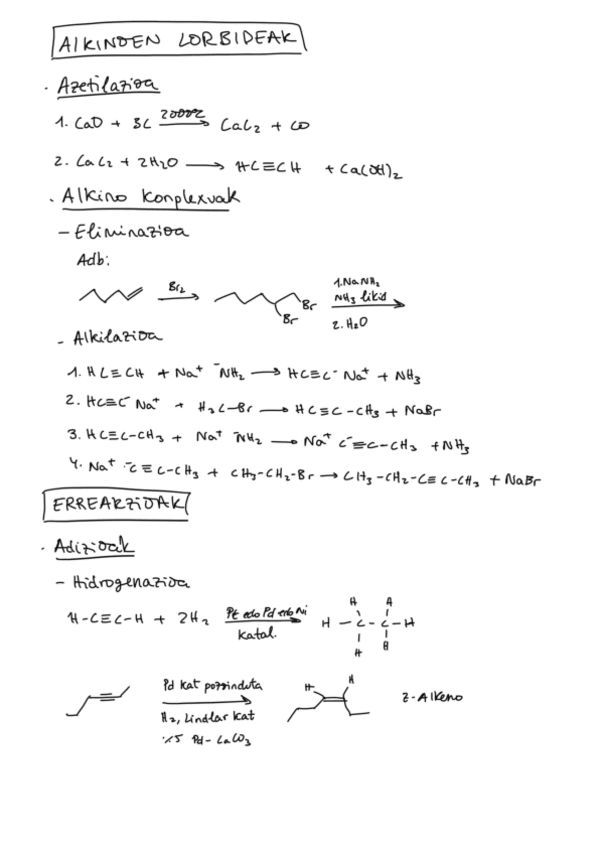 ALKINOEN LORBIDEAK
· Azetilazioa
1. CaO + 3C 2000ºC → CaC2 + CO
2. CaC2 + 2H2O → HC≡CH + Ca(OH)2
· Alkino konplexuak
- Eliminazioa
Adb:
Br2 → Br Br 1. NaNH2 NH3 likid → 2. H2O
- Alkilazioa
1. HC≡CH + Na+ -NH2 → HC≡C- Na+ + NH3
2. HC≡C- Na+ + H3C-Br → HC≡C-CH3 + NaBr
3. HC≡C-CH3 + Na+ -NH2 → Na+ C-≡C-CH3 + NH3
4. Na+ -C≡C-CH3 + CH3-CH2-Br → CH3-CH2-C≡C-CH3 + NaBr
ERREAKZIOAK
· Adizioak
- Hidrogenazioa
H-C≡C-H + 2H2 Pt edo Pd edo Ni → katal. H-C-C-H H H H H
Pd kat pozoinduta → H H Z-Alkeno
H2, Lindlar kat
%5 Pd-CaCO3